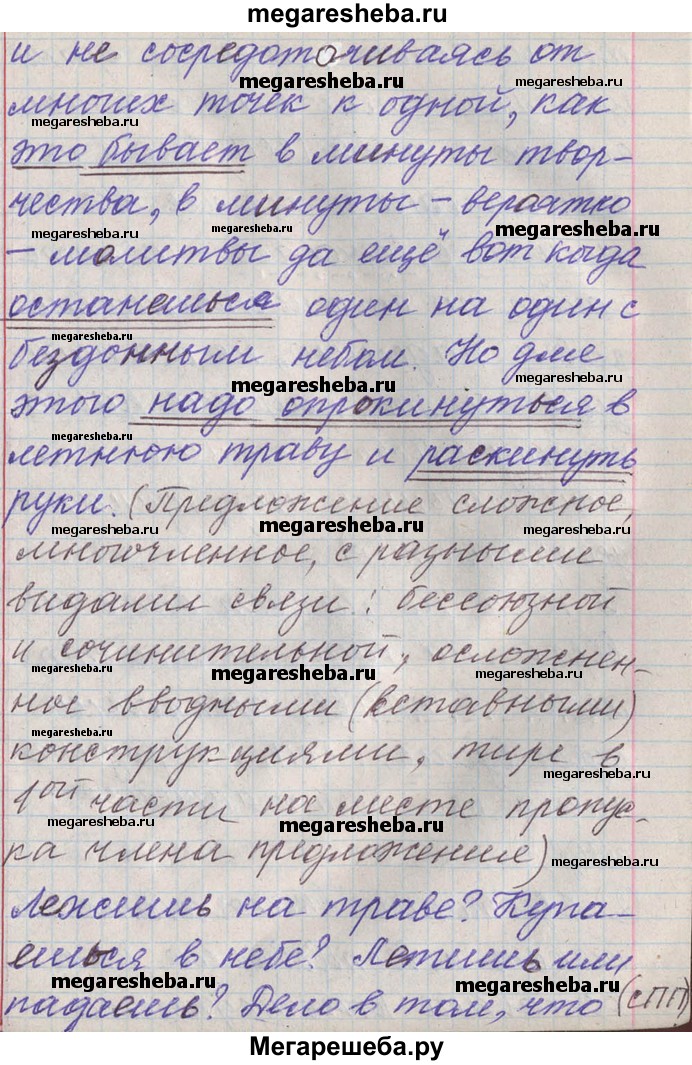 megaresheba.ru
и не сосредоточиваясь от
megaresheba.ru megaresheba.ru
многих точек к одной, как
megaresheba.ru megaresheba.ru
это бывает в минуты твор-
чества, в минуты – вероятно
megaresheba.ru megaresheba.ru megaresheba.ru
– молитвы да ещё вот когда
останешься один на один с
megaresheba.ru
бездонным небом. Но для
megaresheba.ru megaresheba.ru
этого надо опрокинуться в
megaresheba.ru
летнюю траву и раскинуть
руки. (Предложение сложное,
megaresheba.ru megaresheba.ru megaresheba.ru
многочленное, с разными
видами связи: бессоюзной
и сочинительной, осложнен-
megaresheba.ru megaresheba.ru megaresheba.ru
ное вводными (вставными)
конструкциями, тире в
megaresheba.ru
1ой части на месте пропус-
megaresheba.ru megaresheba.ru
ка члена предложение)
megaresheba.ru
Лежишь на траве? Купа-
ешься в небе? Летишь или
megaresheba.ru megaresheba.ru megaresheba.ru
падаешь? Дело в том, что (СПП)
Мегарешеба.ру